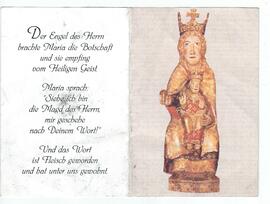 Der Engel des Herrn
brachte Maria die Botschaft
und sie empfing
vom Heiligen Geist
Maria sprach:
"Siehe ich bin
die Magd des Herrn,
mir geschehe
nach Deinem Wort!"
Und das Wort
ist Fleisch geworden
und hat unter uns gewohnt